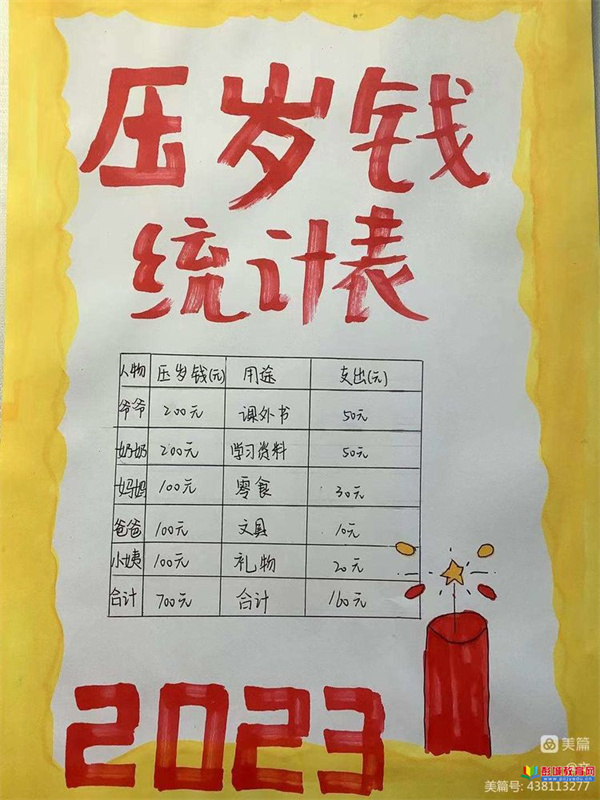 压岁钱
统计表
人物 压岁钱(元) 用途 支出(元)
爷爷 200元 课外书 50元
奶奶 200元 学习资料 50元
妈妈 100元 零食 30元
爸爸 100元 文具 10元
小姨 100元 礼物 20元
合计 700元 合计 160元
2023
美篇
彭城教育网
美篇号: 438113277